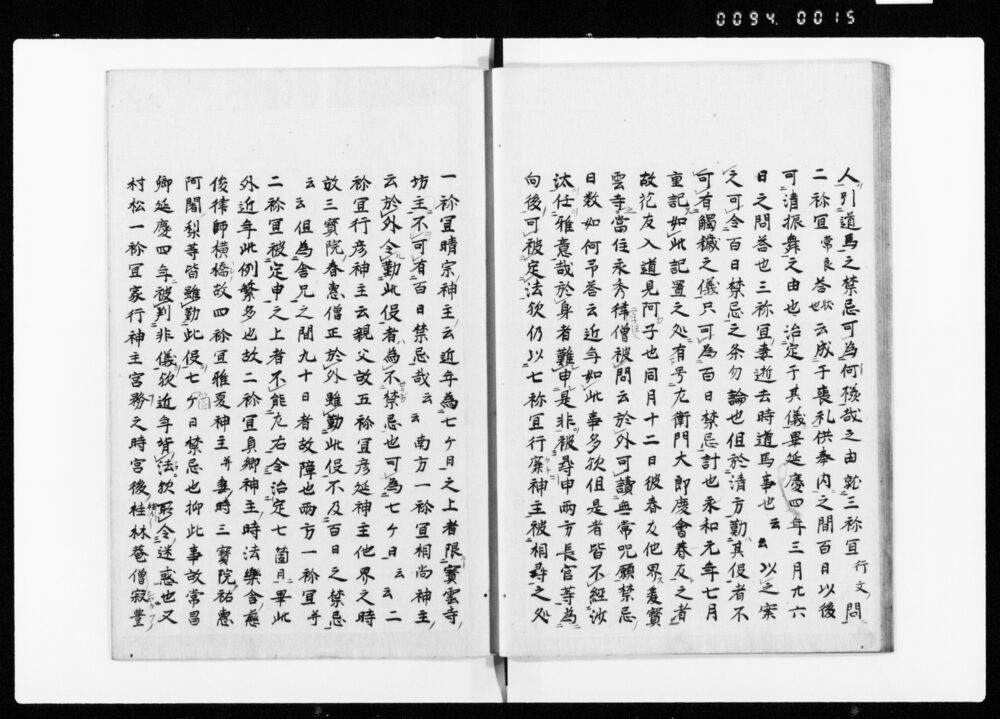 0094.0015
人引道馬之禁忌可為何様哉之由就三祢宜行文問
二祢宜常良答状也云成于喪礼供奉内之間百日以後
可清振舞之由也治定于其儀畢延慶四年三月九六
日之問答也三祢宜妻逝去時道馬事也云云以之案
之可令百日禁忌之条勿論也但於清方勤其役者不
可有觸穢之儀只可為百日禁忌計也永和元年七月
重記如此記置之処有号左衛門大郎慶會春友之者
故花友入道見阿子也同月十二日彼春友他界爰寳
雲寺當住永秀律僧被問云於外可讀無常呪願禁忌
日数如何予答云近年如此事多欤但是者皆不経沙
汰任雅意哉於身者難申是非被尋申両方長官等為
向後可被定法欤仍以七祢宜行廉神主被相尋之処
一祢宜晴宗神主云近年為七ヶ日之上者限寳雲寺
坊主不可有百日禁忌哉云云南方一祢宜相尚神主
云於外令勤此役者為不禁忌也可為七ヶ日云云二
祢宜行彦神主云親父故五祢宜彦延神主他界之時
故三寳院春恵僧正於外雖勤此役不及百日之禁忌
云云但為舎兄之間九十日者故障也両方一祢宜并
二祢宜被定申之上者不能左右令治定七箇日畢此
外近年此例繁多也故二祢宜貞郷神主時法樂舎慈
俊律師横橋故四祢宜雅夏神主并妻時三寳院祐恵
阿闍梨等皆雖勤此役七ヶ日禁忌也抑此事故常昌
卿延慶四年被判非儀欤近年背法欤形令迷惑也又
村松一祢宜家行神主宮務之時宮後桂林菴僧寂豊